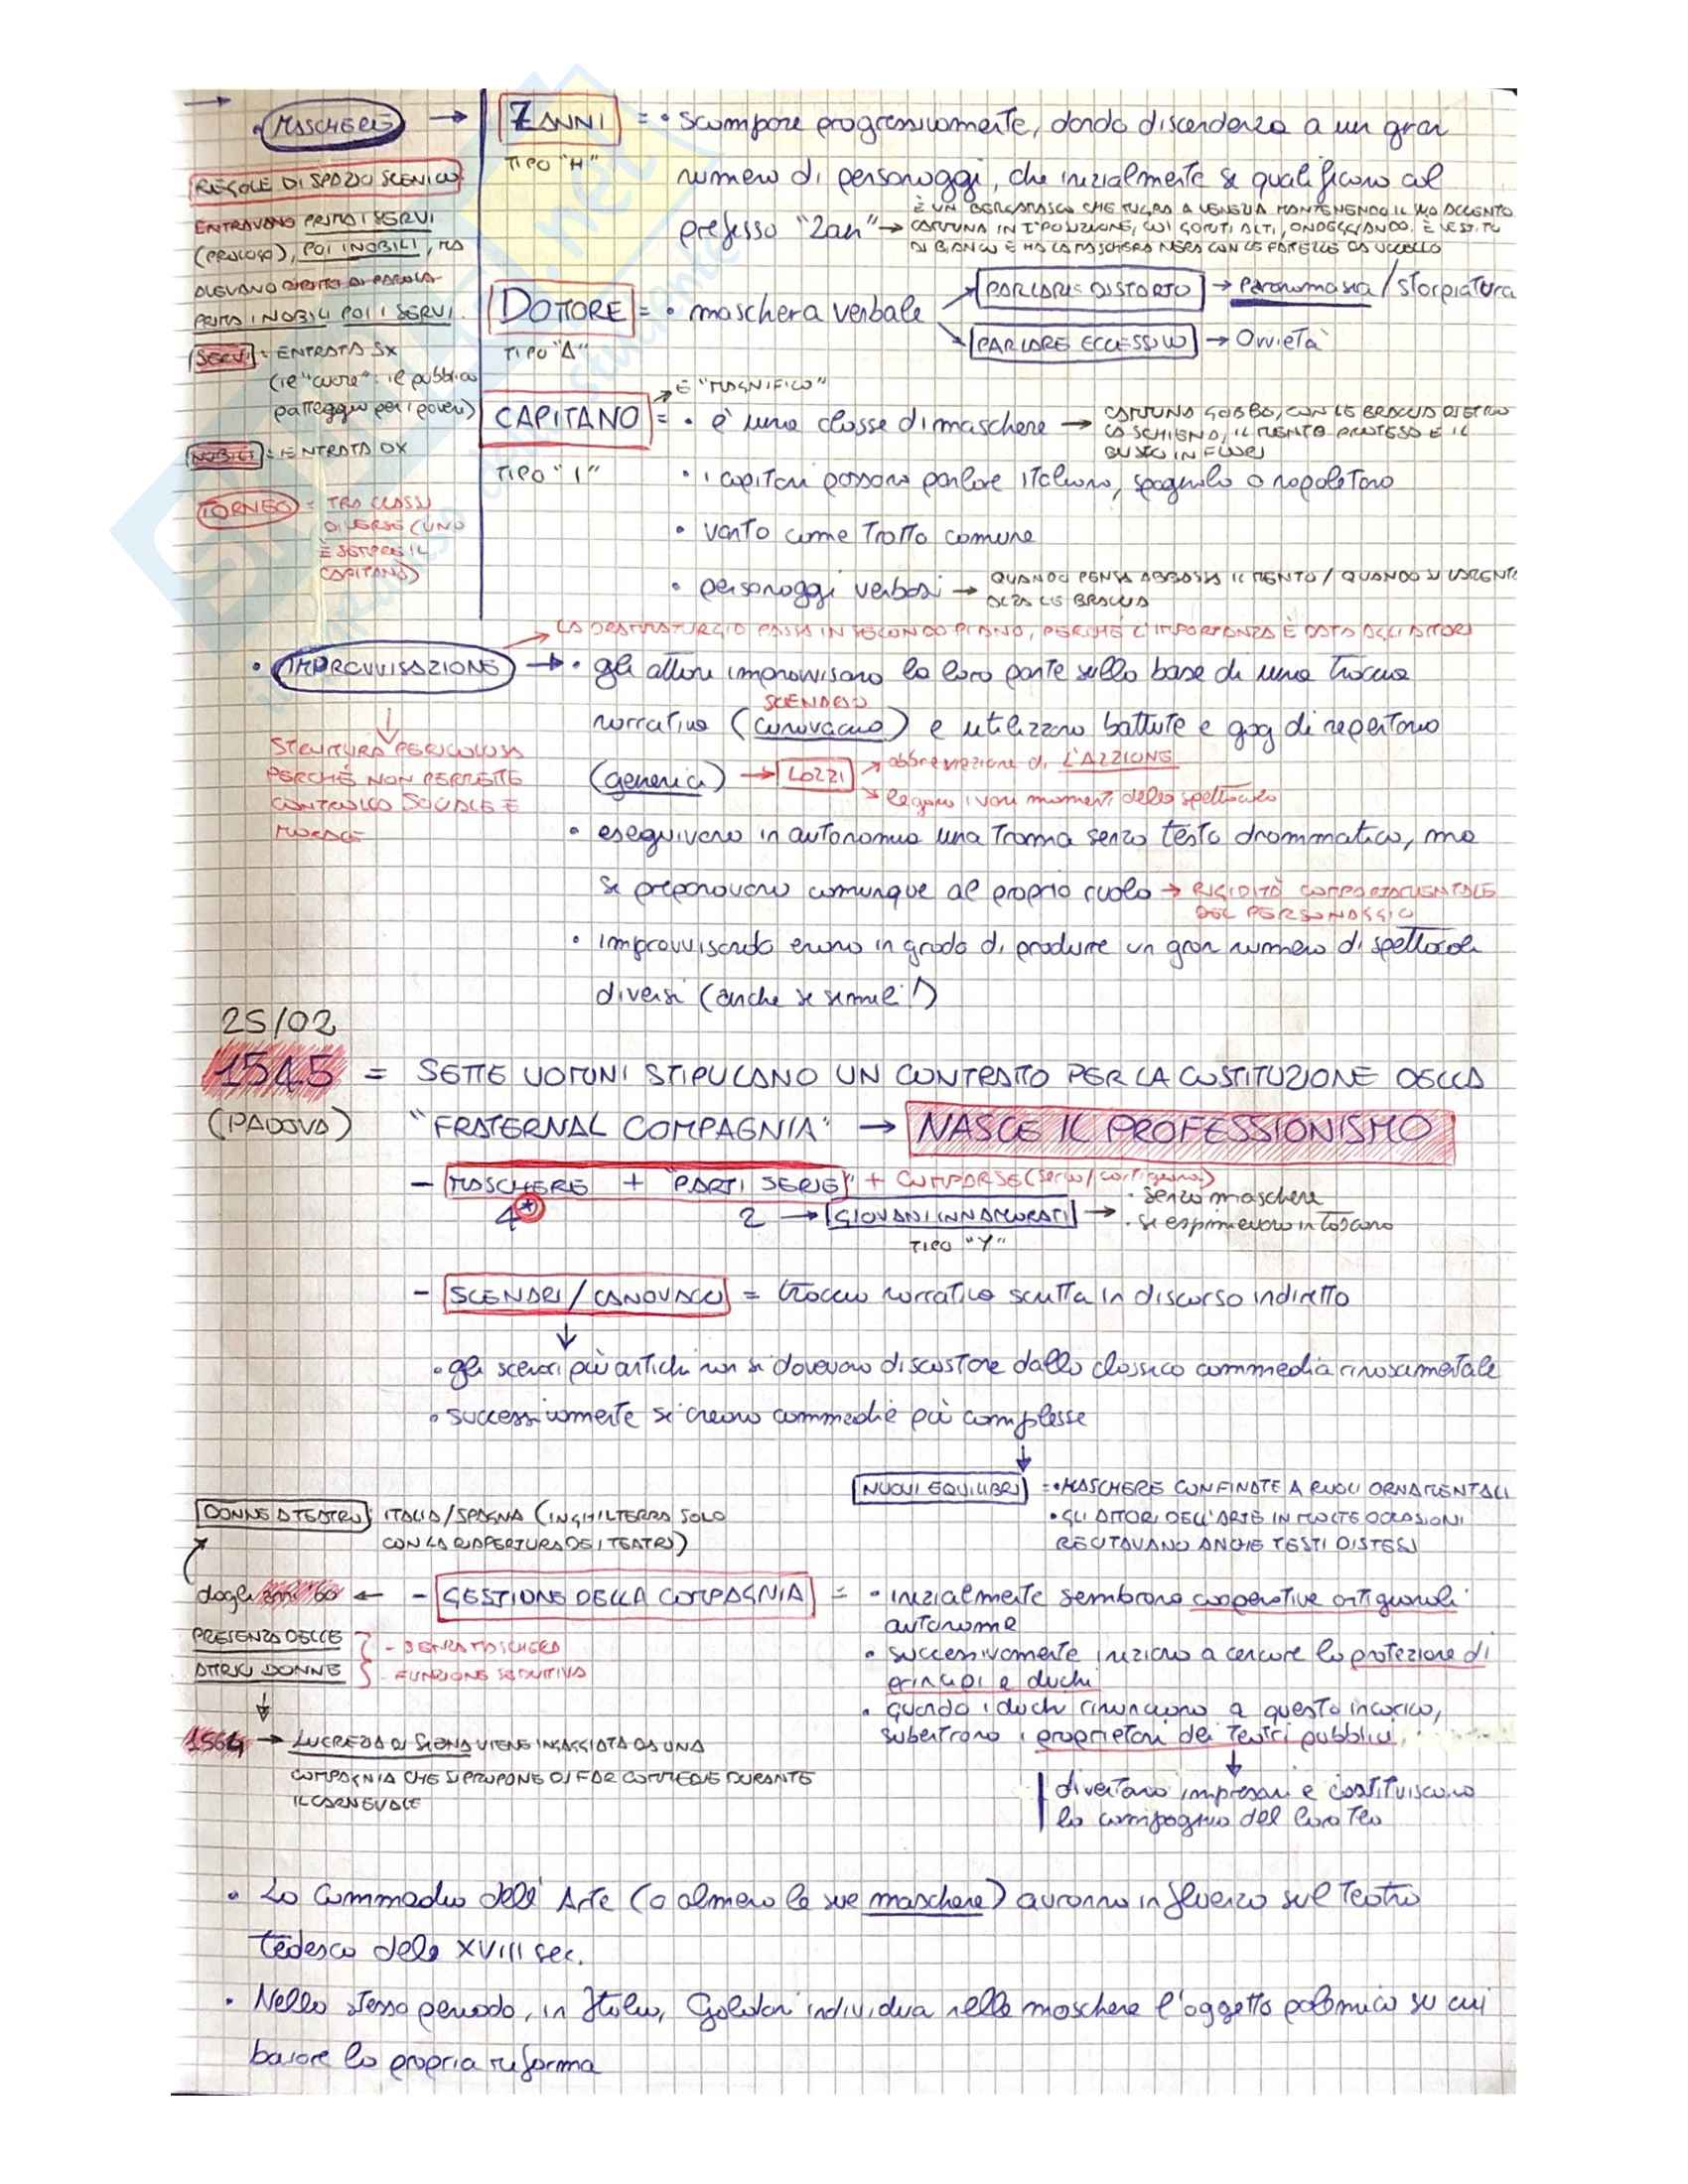 • MASCHERE → ZANNI = • scompare progressivamente, dando discendenza a un gran
TIPO "H"
numero di personaggi, che inizialmente si qualificano col
prefesso "Zan" → È UN BERGAMASCO CHE MIGRA A VENEZIA MANTENENDO IL SUO ACCENTO
CAMMINA IN 1ª POSIZIONE, COI GOMITI ALTI, ONDEGGIANDO. È VESTITO
DI BIANCO E HA LA MASCHERA NERA CON LE FATTEZZE DA UCCELLO
REGOLE DI SPAZIO SCENICO
ENTRAVANO PRIMA I SERVI
(PROLOGO), POI I NOBILI, MA
AVEVANO DIRITTO DI PAROLA
PRIMA I NOBILI POI I SERVI.
SERVI = ENTRATA SX
(il "cuore": il pubblico
patteggia per i poveri)
NOBILI = ENTRATA DX
TORNEO = TRA CLASSI
DIVERSE (UNO
È SEMPRE IL
CAPITANO)
DOTTORE = • maschera verbale
TIPO "A"
PARLARE DISTORTO → Paronomasia / storpiatura
PARLARE ECCESSIVO → Ovvietà
È "MAGNIFICO"
CAPITANO = • è una classe di maschere → CAMMINA GOBBO, CON LE BRACCIA DIETRO
LA SCHIENA, IL MENTO PROTESO E IL
BUSTO IN FUORI
TIPO "I"
• i capitani possono parlare italiano, spagnolo o napoletano
• vanto come tratto comune
• personaggi verbosi → QUANDO PENSA ABBASSA IL MENTO / QUANDO SI LAMENTA
ALZA LE BRACCIA
LA DRAMMATURGIA PASSA IN SECONDO PIANO, PERCHÉ L'IMPORTANZA È DATA AGLI ATTORI
• IMPROVVISAZIONE → • gli attori improvvisano la loro parte sulla base di una traccia
SCENARIO
narrativa (canovaccio) e utilizzano battute e gag di repertorio
(generici) → LAZZI → abbreviazione di L'AZZIONE
→ legano i vari momenti dello spettacolo
STRUTTURA PERICOLOSA
PERCHÉ NON PERMETTE
CONTROLLO SOCIALE E
MORALE
• eseguivano in autonomia una trama senza testo drammatico, ma
si preparavano comunque al proprio ruolo → RIGIDITÀ COMPORTAMENTALE
DEL PERSONAGGIO
• improvvisando erano in grado di produrre un gran numero di spettacoli
diversi (anche se simili!)
25/02
1545 = SETTE UOMINI STIPULANO UN CONTRATTO PER LA COSTITUZIONE DELLA
(PADOVA) "FRATERNAL COMPAGNIA" → NASCE IL PROFESSIONISMO
- MASCHERE + "PARTI SERIE" + COMPARSE (servo/cortigiana)
4* 2 → GIOVANI INNAMORATI → • senza maschere
• si esprimevano in toscano
TIPO "Y"
- SCENARI / CANOVACCI = traccia narrativa scritta in discorso indiretto
• gli scenari più antichi non si dovevano discostare dalla classica commedia rinascimentale
• successivamente si creano commedie più complesse
NUOVI EQUILIBRI = • MASCHERE CONFINATE A RUOLI ORNAMENTALI
• GLI ATTORI DELL'ARTE IN MOLTE OCCASIONI
RECITAVANO ANCHE TESTI DISTESI
DONNE A TEATRO: ITALIA/SPAGNA (INGHILTERRA SOLO
CON LA RIAPERTURA DEI TEATRI)
dagli anni 60 ← - GESTIONE DELLA COMPAGNIA = • inizialmente sembrano cooperative artigianali
autonome
PRESENZA DELLE
ATTRICI DONNE
- SENZA MASCHERA
- FUNZIONE SEDUTTIVA
• successivamente iniziano a cercare la protezione di
principi e duchi
• quando i duchi rinunciano a questo incarico,
subentrano i proprietari dei teatri pubblici
diventano impresari e costituiscono
la compagnia del loro teatro
1564 → LUCREZIA DI SIENA VIENE INGAGGIATA DA UNA
COMPAGNIA CHE SI PROPONE DI FAR COMMEDIE DURANTE
IL CARNEVALE
• La Commedia dell'Arte (o almeno le sue maschere) avranno influenza sul teatro
tedesco dello XVIII sec.
• Nello stesso periodo, in Italia, Goldoni individua nelle maschere l'oggetto polemico su cui
basare la propria riforma